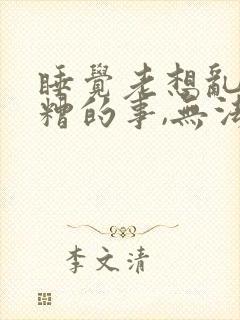 睡覺老想亂
糟的事,無法
李文清